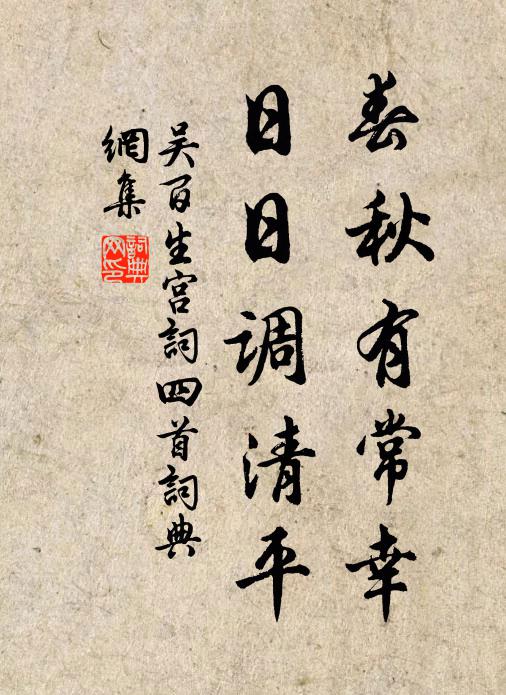 春秋有常幸
日日调清平
吴百生宫詞四首詞典
網集
詞典
网印